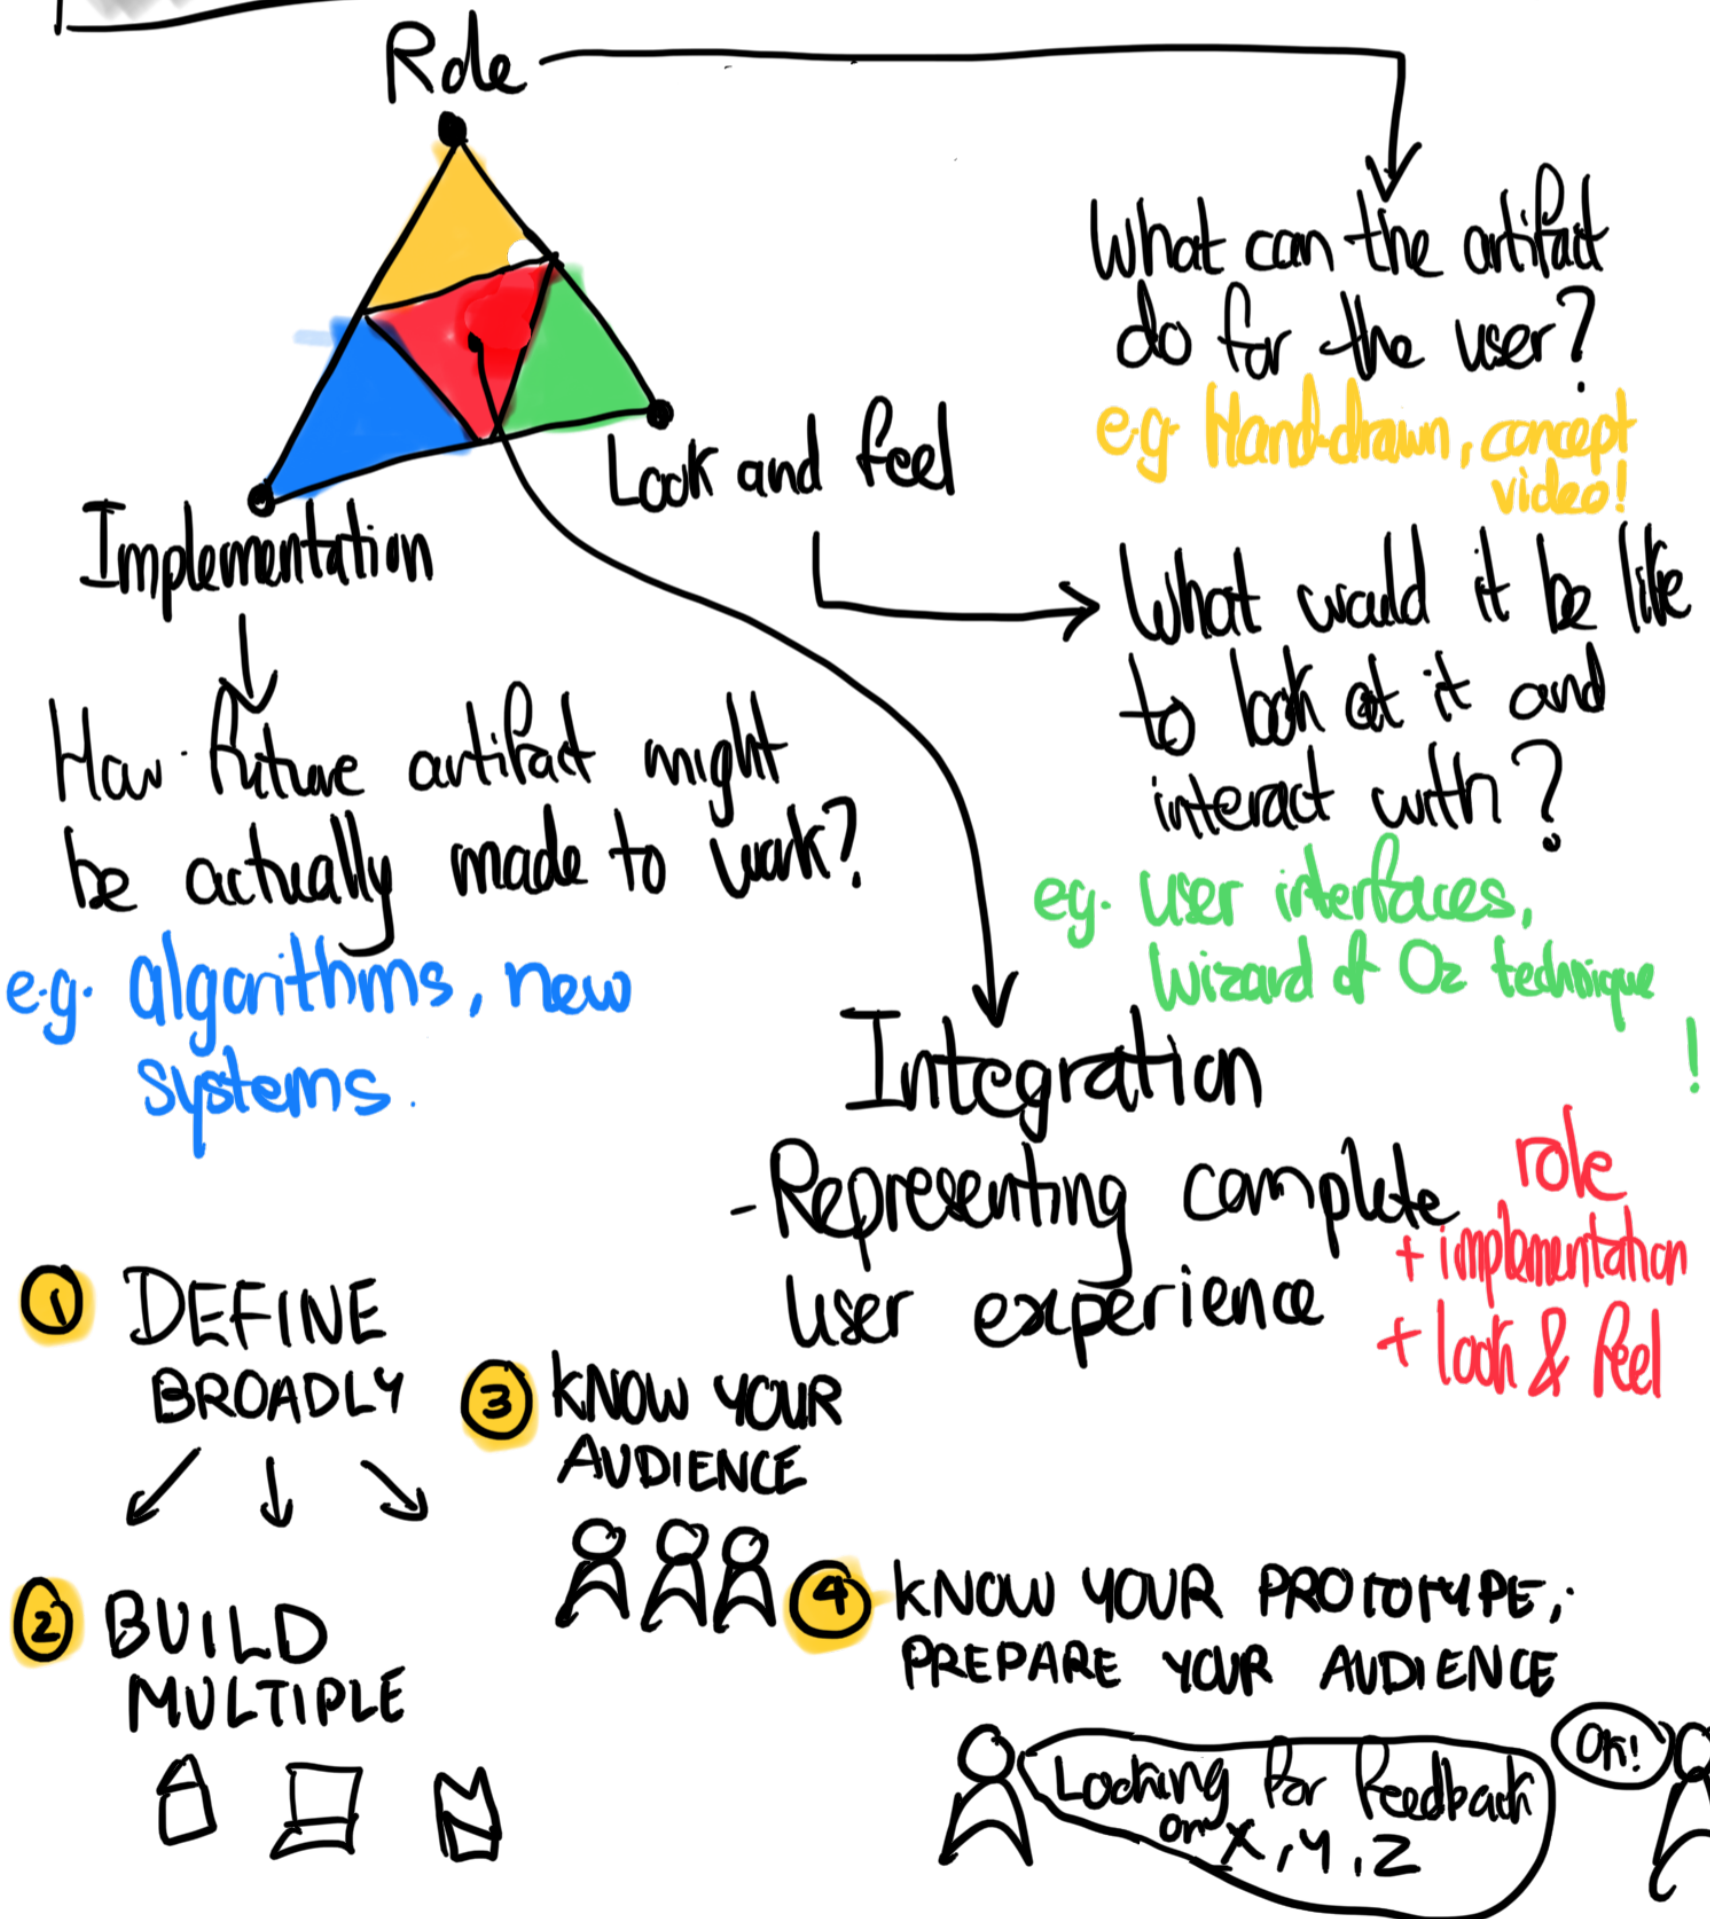 Role
What can the artifact
do for the user?
e.g Hand-drawn, concept
video!
Look and feel
What would it be like
to look at it and
interact with?
eg. User interfaces,
Wizard of Oz technique
!
Implementation
How future artifact might
be actually made to work?
e.g. algorithms, new
systems.
Integration
- Representing complete
user experience
role
+ implementation
+ look & feel
1 DEFINE
BROADLY
2 BUILD
MULTIPLE
3 KNOW YOUR
AUDIENCE
4 KNOW YOUR PROTOTYPE;
PREPARE YOUR AUDIENCE
Looking for feedback
on X, Y, Z
OK!